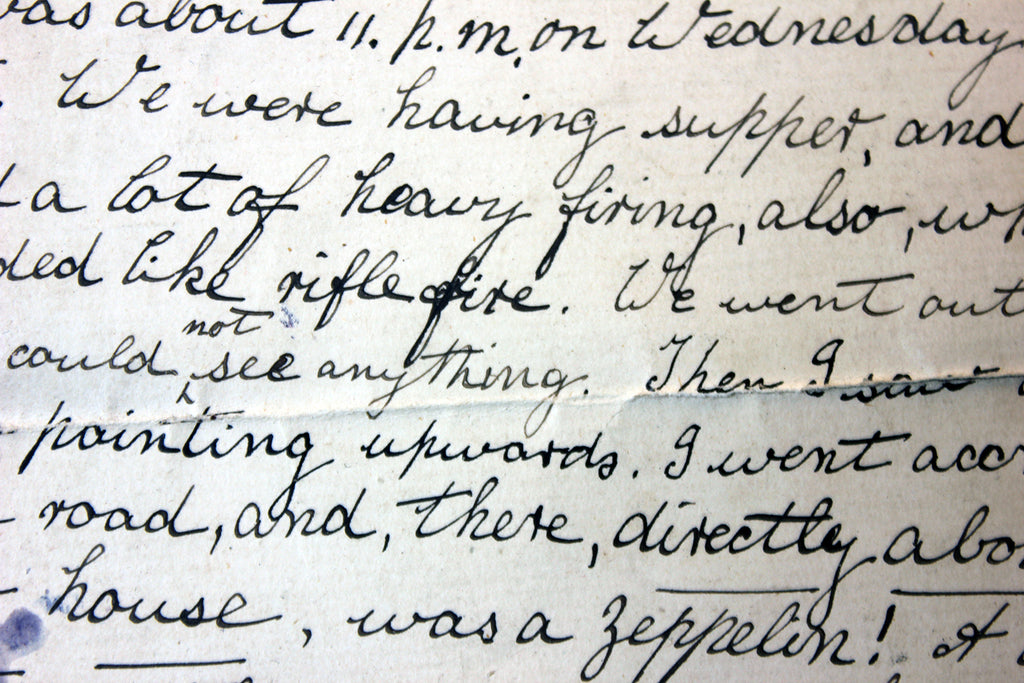 was about 11. p.m, on Wednesday
We were having supper, and
a lot of heavy firing, also, wh
ded like rifle fire. We went out
could not see anything. Then I saw
pointing upwards. I went acc
road, and, there, directly abo
house, was a Zeppelin! A